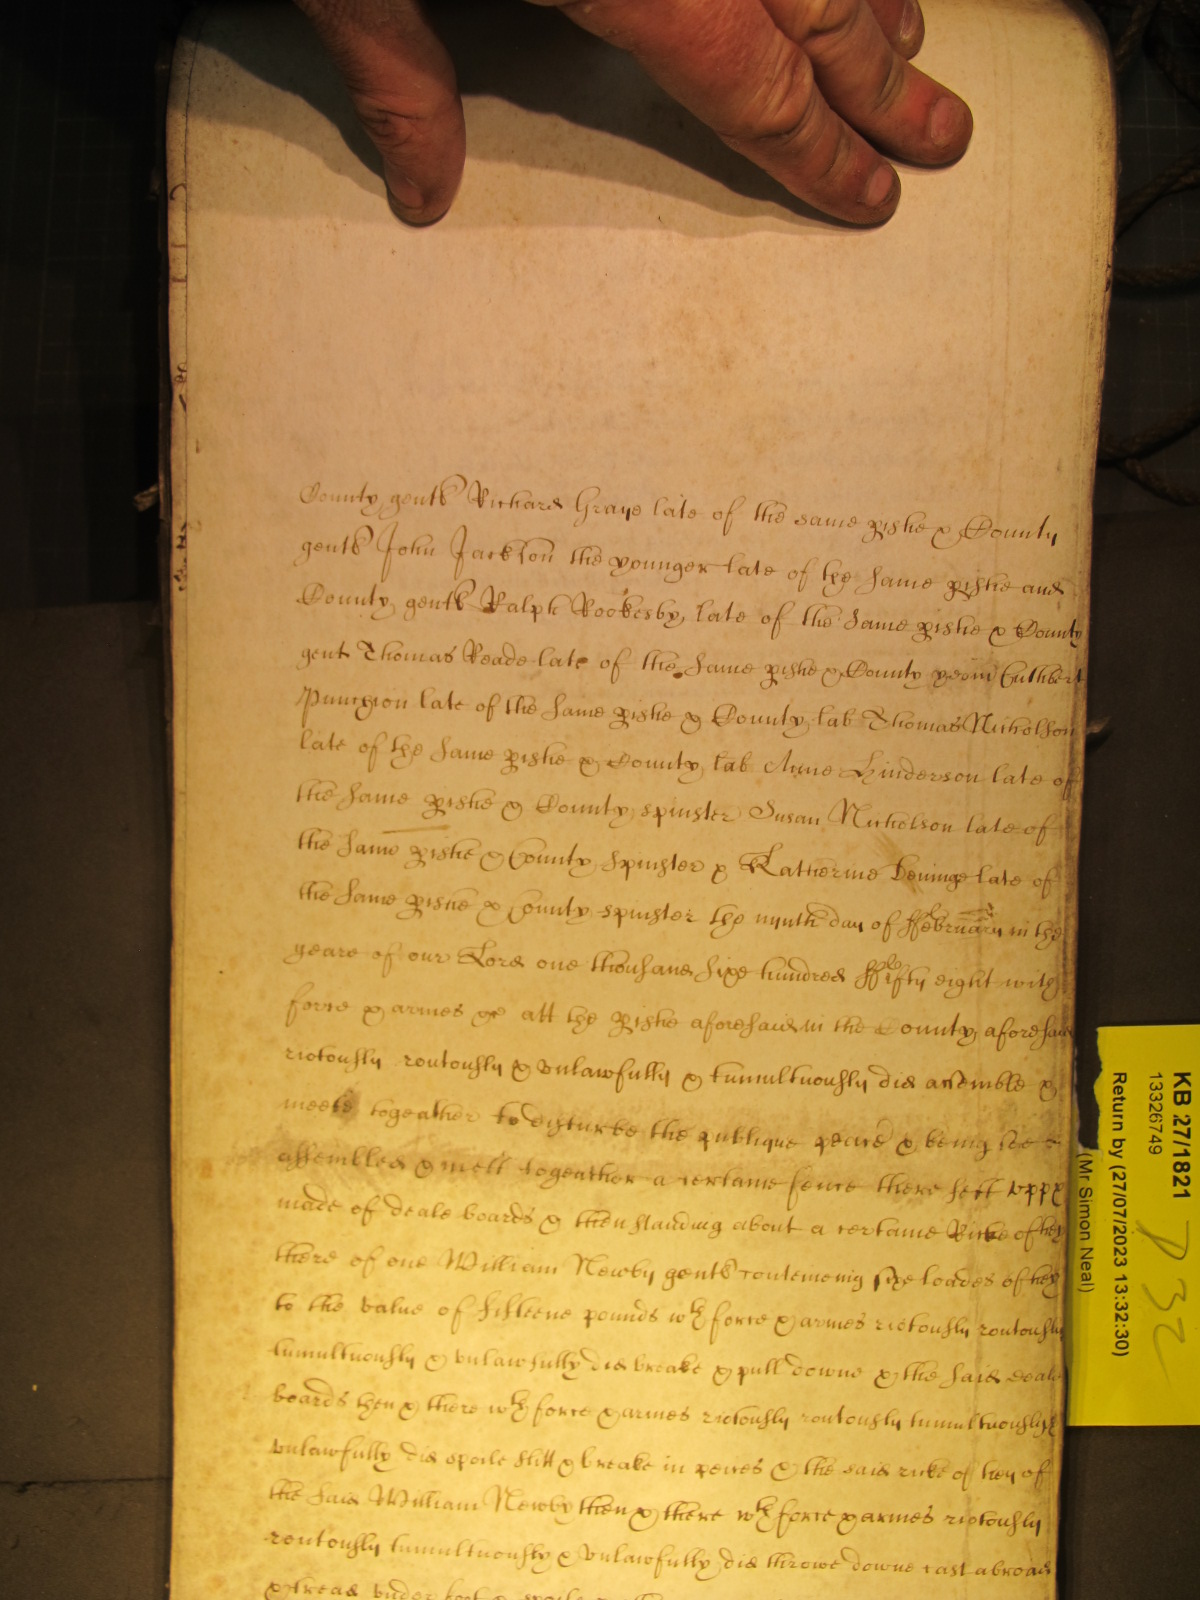 County gentl Richard Graye late of the same pishe & County
gentl John Jackson the younger late of the same pishe and
County gentl Ralph Rookesby late of the same pishe & County
gent Thomas Reade late of the same pishe & County yeom Cuthbert
Punchion late of the same pishe & County lab Thomas Nicholson
late of the same pishe & County lab Anne Hinderson late of
the same pishe & County spinster Susan Nicholson late of
the same pishe & County spinster & Katherine late of
the same pishe & County spinster the nynth day of ffebruary in the
yeare of our Lord one thousand sixe hundred fifty eight with
force & armes &c att the pishe aforesaid in the County aforesaid
riotously routously & unlawfully & tumultuously did assemble &
meete togeather to disturbe the publique peace & being soe
assembled & mett togeather a certaine fence there sett vpp
made of deale boards & then standing about a certaine Ricke of hey
there of one William Newby gentl conteineing sixe loades of hey
to the value of fifteene pounds wth force & armes riotously routously
tumultuously & vnlawfully did breake & pull downe & the said deale
boards then & there wth force & armes riotously routously tumultuously &
vnlawfully did spoile slitt & breake in peices & the said ricke of hey of
the said William Newby then & there wth force & armes riotously
routously tumultuously & vnlawfully did throwe downe cast abroad
& tread vnder foot & spoile
KB 27/1821
13326749
Return by (27/07/2023 13:32:30)
(Mr Simon Neal)
P 32